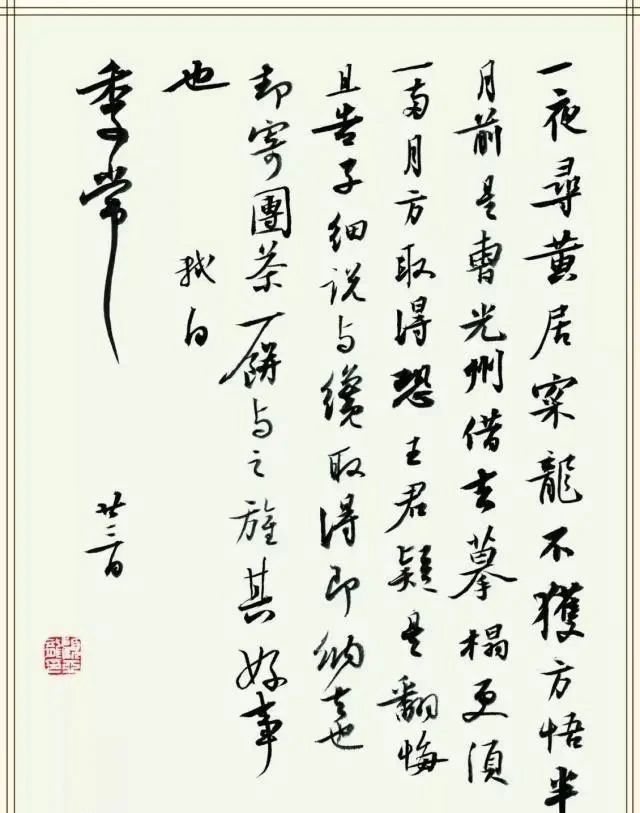 一夜尋黄居寀龍不獲方悟半
月前是曹光州借去摹榻更須
一兩月方取得恐王君疑是翻悔
且告子細說与纔取得即納去也
却寄團茶一餅与之旌其好事
也
軾白
季常
廿三日